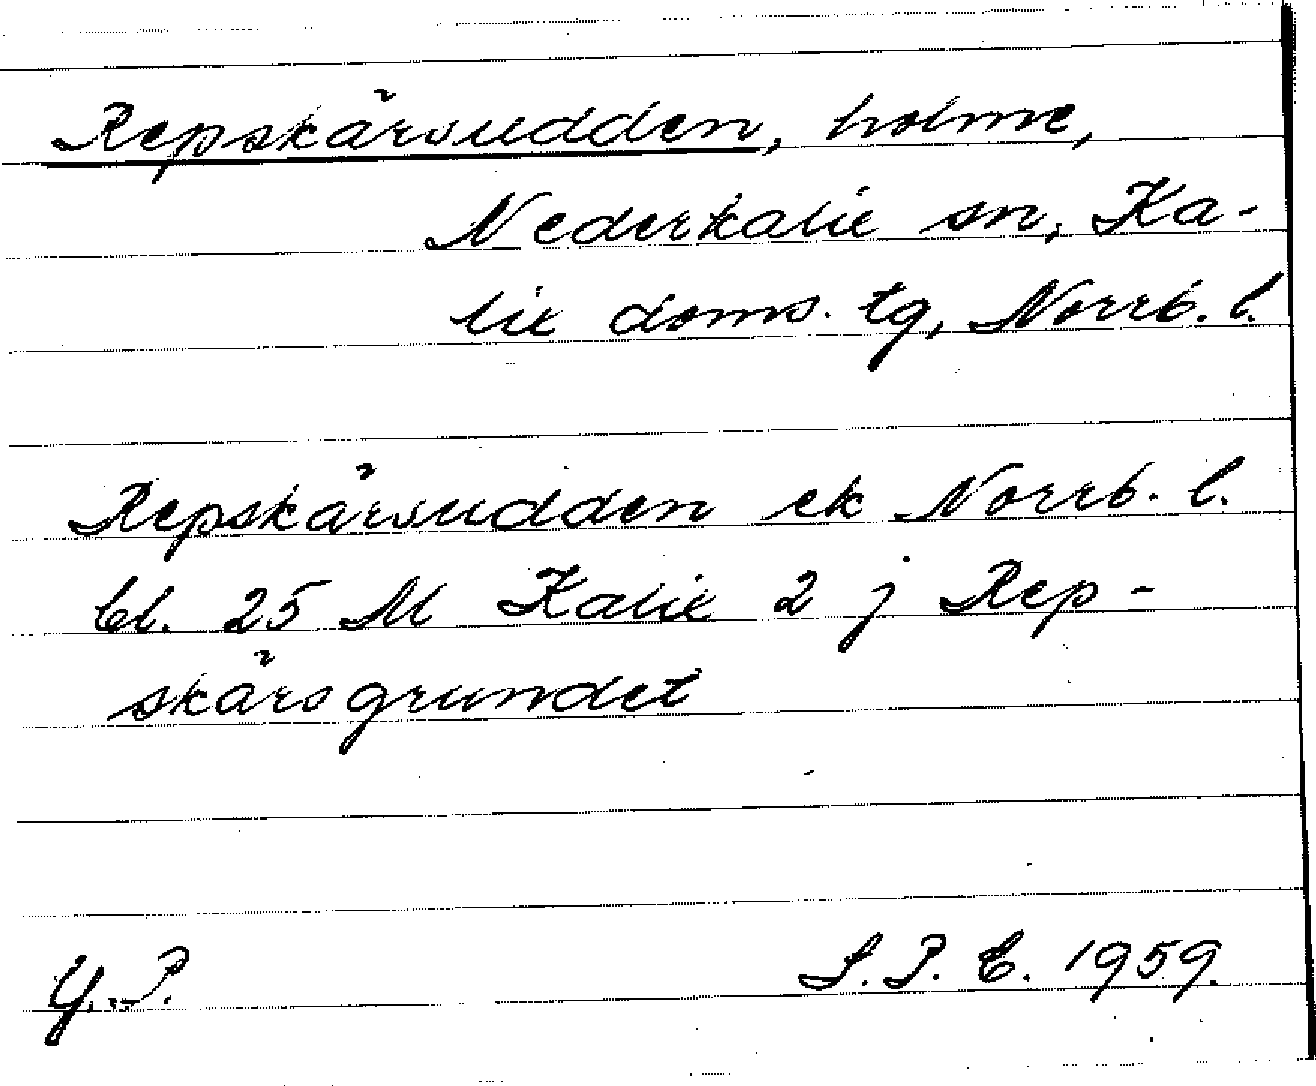 Repskärsudden, holme,
Nederkalix sn, Ka-
lix doms. tg, Norrb. l.
Repskärsudden ek Norrb. l.
bl. 25 M Kalix 2 j Rep-
skärsgrundet
Y. P. S. P. C. 1959.